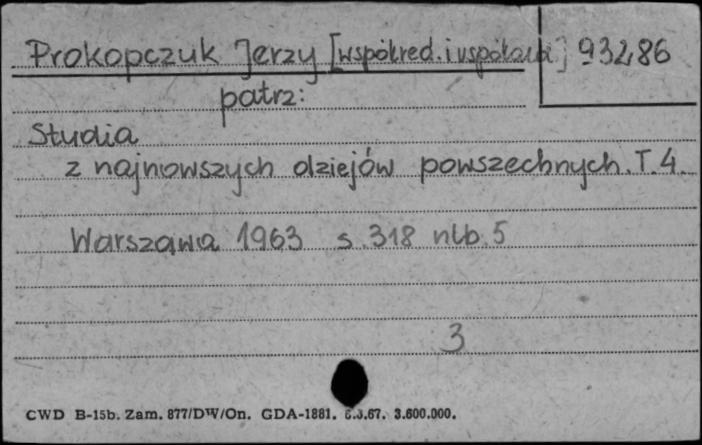 Prokopczuk Jerzy [współred. i współaut.] 93286
patrz:
Studia
z najnowszych dziejów powszechnych. T. 4.
Warszawa 1963 s. 318 nlb. 5
3
CWD B-15b. Zam. 877/DW/On. GDA-1881. 6.3.67. 3.600.000.